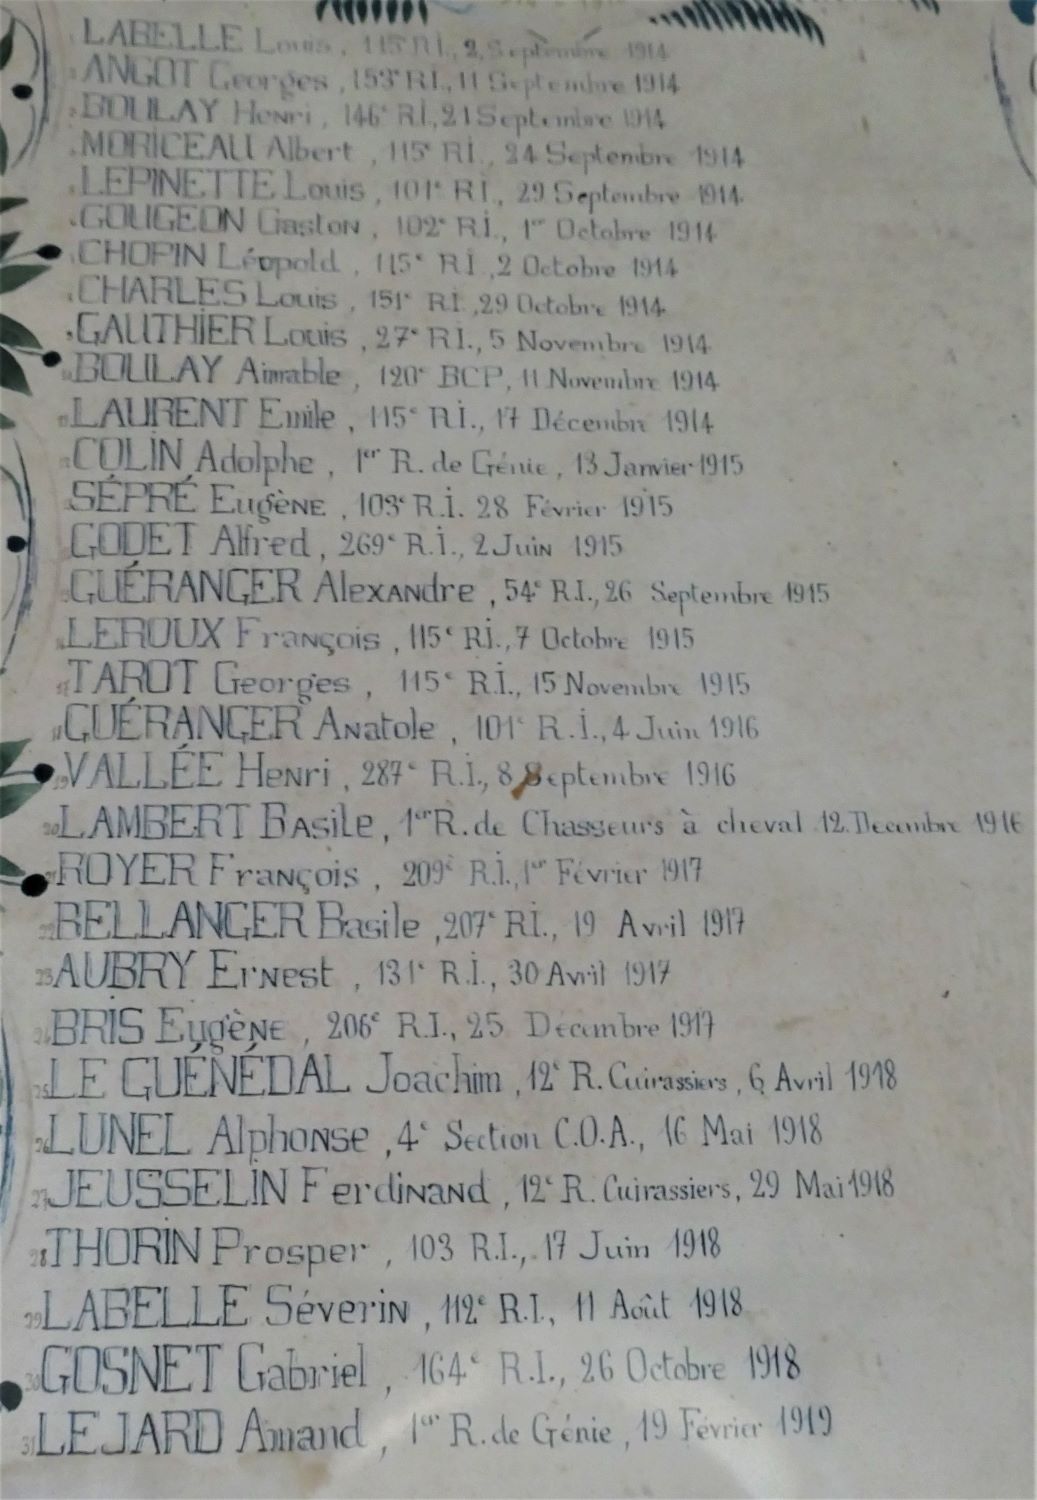 LABELLE Louis, 115e R.I., 2, Septembre 1914
ANGOT Georges, 153e R.I., 11 Septembre 1914
BOULAY Henri, 146e R.I., 21 Septembre 1914
MORICEAU Albert, 115e R.I., 24 Septembre 1914
LEPINETTE Louis, 101e R.I., 29 Septembre 1914
GOUGEON Gaston, 102e R.I., 1er Octobre 1914
CHOPIN Léopold, 115e R.I., 2 Octobre 1914
CHARLES Louis, 151e R.I., 29 Octobre 1914
GAUTHIER Louis, 27e R.I., 5 Novembre 1914
BOULAY Aimable, 120e BCP, 11 Novembre 1914
LAURENT Emile, 115e R.I., 17 Décembre 1914
COLIN Adolphe, 1er R. de Génie, 13 Janvier 1915
SÉPRÉ Eugène, 103e R.I. 28 Février 1915
GODET Alfred, 269e R.I., 2 Juin 1915
GUÉRANGER Alexandre, 54e R.I., 26 Septembre 1915
LEROUX François, 115e R.I., 7 Octobre 1915
17 TAROT Georges, 115e R.I., 15 Novembre 1915
18 GUÉRANGER Anatole, 101e R.I., 4 Juin 1916
19 VALLÉE Henri, 287e R.I., 8 Septembre 1916
20 LAMBERT Basile, 1er R. de Chasseurs à cheval 12. Decembre 1916
ROYER François, 209e R.I., 1er Février 1917
22 BELLANGER Basile, 207e R.I., 19 Avril 1917
23 AUBRY Ernest, 131e R.I., 30 Avril 1917
24 BRIS Eugène, 206e R.I., 25 Décembre 1917
25 LE GUÉNÉDAL Joachim, 12e R. Cuirassiers, 6 Avril 1918
26 LUNEL Alphonse, 4e Section C.O.A., 16 Mai 1918
27 JEUSSELIN Ferdinand, 12e R. Cuirassiers, 29 Mai 1918
28 THORIN Prosper, 103 R.I., 17 Juin 1918
29 LABELLE Séverin, 112e R.I., 11 Août 1918
30 GOSNET Gabriel, 164e R.I., 26 Octobre 1918
31 LEJARD Amand, 1er R. de Génie, 19 Février 1919